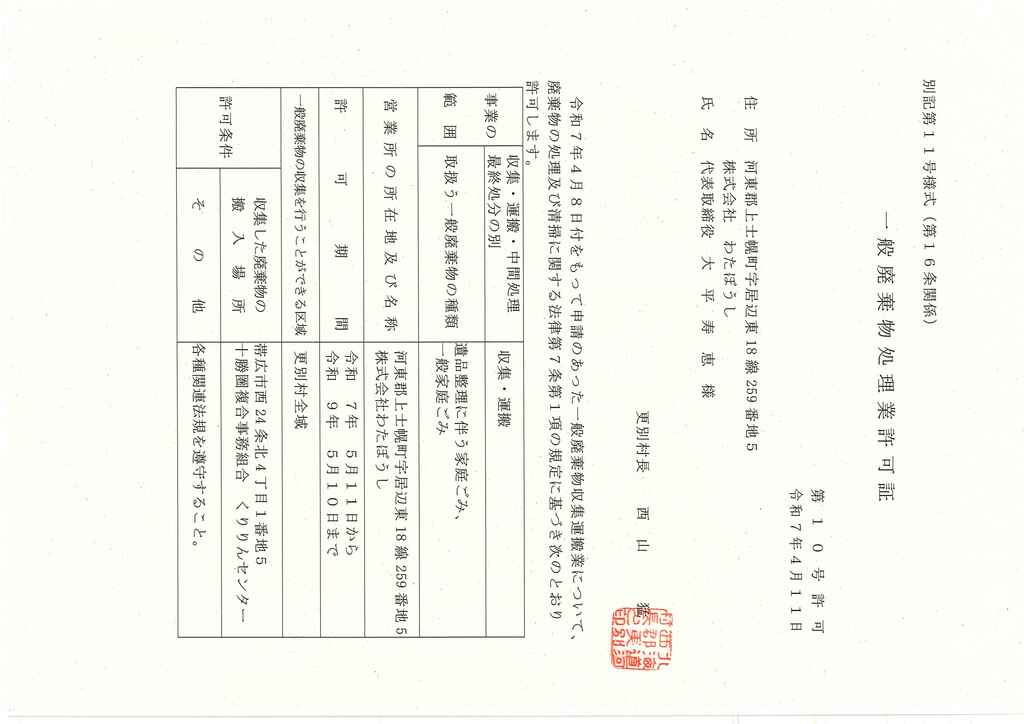 別記第11号様式（第16条関係）
一般廃棄物処理業許可証
第10号許可
令和7年4月11日
住所 河東郡上士幌町字居辺東18線259番地5
株式会社 わたぼうし
氏名 代表取締役 大平寿恵様
更別村長 西山 猛
令和7年4月8日付をもって申請のあった一般廃棄物収集運搬業について、
廃棄物の処理及び清掃に関する法律第7条第1項の規定に基づき次のとおり
許可します。
事業の範囲
収集・運搬・中間処理
最終処分の別
収集・運搬
取扱う一般廃棄物の種類
遺品整理に伴う家庭ごみ、
一般家庭ごみ
営業所の所在地及び名称
河東郡上士幌町字居辺東18線259番地5
株式会社わたぼうし
許可期間
令和 7年 5月11日から
令和 9年 5月10日まで
一般廃棄物の収集を行うことができる区域
更別村全域
許可条件
収集した廃棄物の
搬入場所
帯広市西24条北4丁目1番地5
十勝圏複合事務組合 くりりんセンター
その他
各種関連法規を遵守すること。